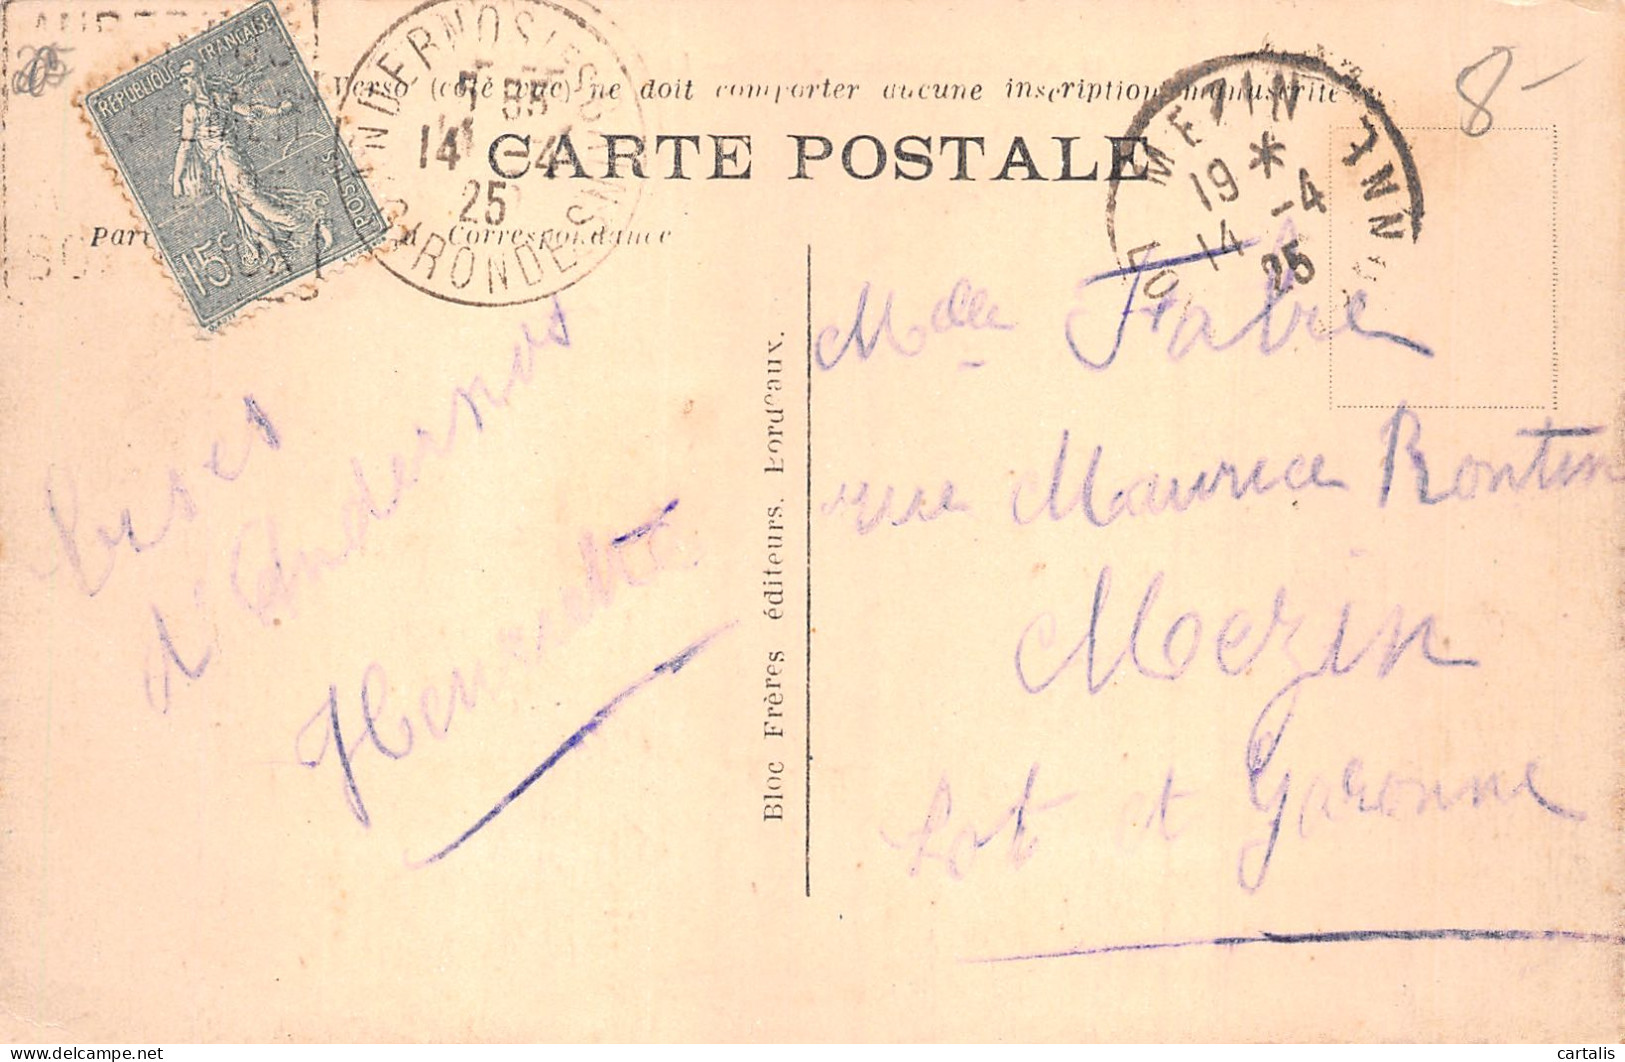 RÉPUBLIQUE FRANÇAISE
POSTES
15c
ANDERNOS-LES-BAINS
7 55
14 -4
25
GIRONDE
Verso (coté vue) ne doit comporter aucune inscription manuscrite
CARTE POSTALE
Correspondance
MEZIN
19 *
14 -4
25
LOT
8-
Bises
d'Andernos
Henriette
Bloc Frères éditeurs. Bordeaux.
Melle Fabre
rue Maurice Rontin
Mezin
Lot et Garonne
cartalis